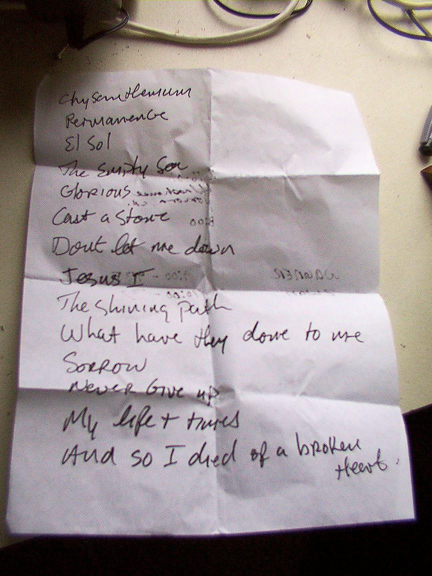 Chysanthemum
Permanence
El Sol
The Empty Sea
Glorious
Cast a Stone
Dont let me down
Jesus I
The Shining Path
What have they done to me
Sorrow
Never Give up
My life + times
And so I died of a broken
Heart.